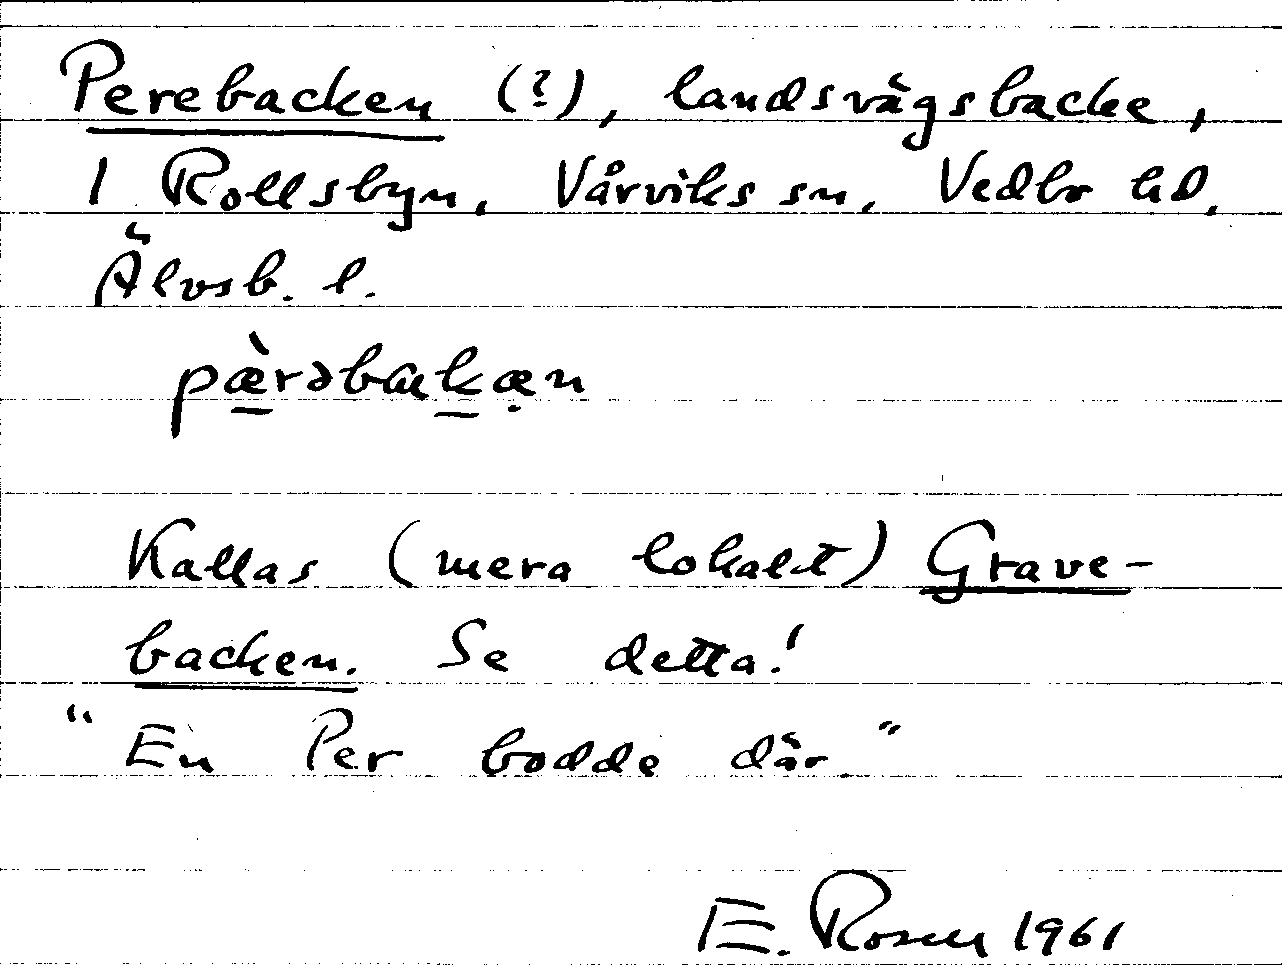 Perebacken (?), landsvägsbacke,
1 Rollsbyn, Vårviks sn, Vedbo hd,
Älvsb. l.
pæ̀rəbakæn
Kallas (mera lokalt) Grave-
backen. Se detta!
"En Per bodde där"
E. Rosen 1961